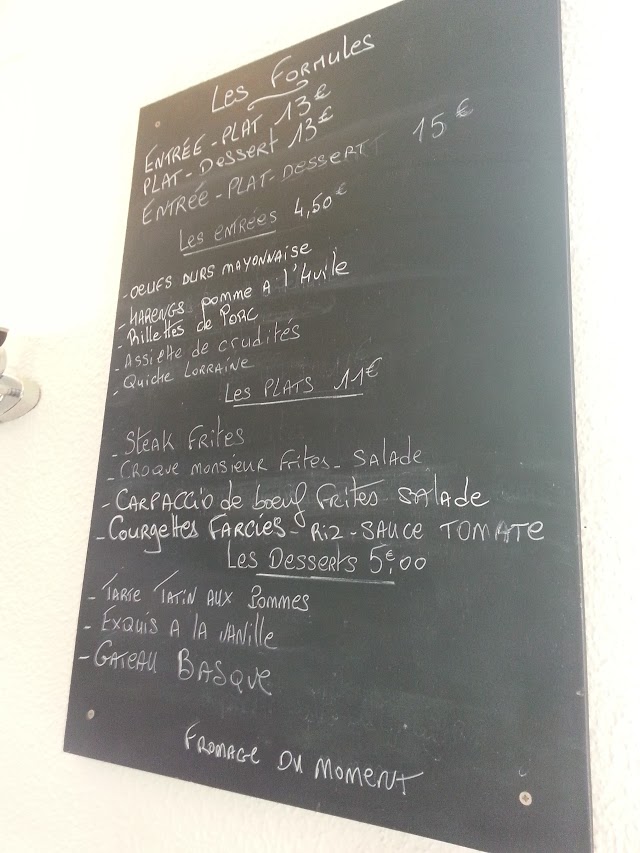 Les Formules
ENTRÉE - PLAT 13€
PLAT - Dessert 13€
ENTRÉE - PLAT - DESSERT 15€
Les entrées 4,50€
- OEUFS DURS MAYONNAISE
- HARENGS pomme A l'Huile
- Rillettes de Porc
- Assiette de crudités
- Quiche Lorraine
Les PLATS 11€
- Steak Frites
- Croque monsieur Frites - Salade
- Carpaccio de boeuf Frites Salade
- Courgettes Farcies - Riz - Sauce Tomate
Les Desserts 5€00
- Tarte Tatin aux Pommes
- Exquis A la vanille
- Gateau Basque
Fromage du Moment